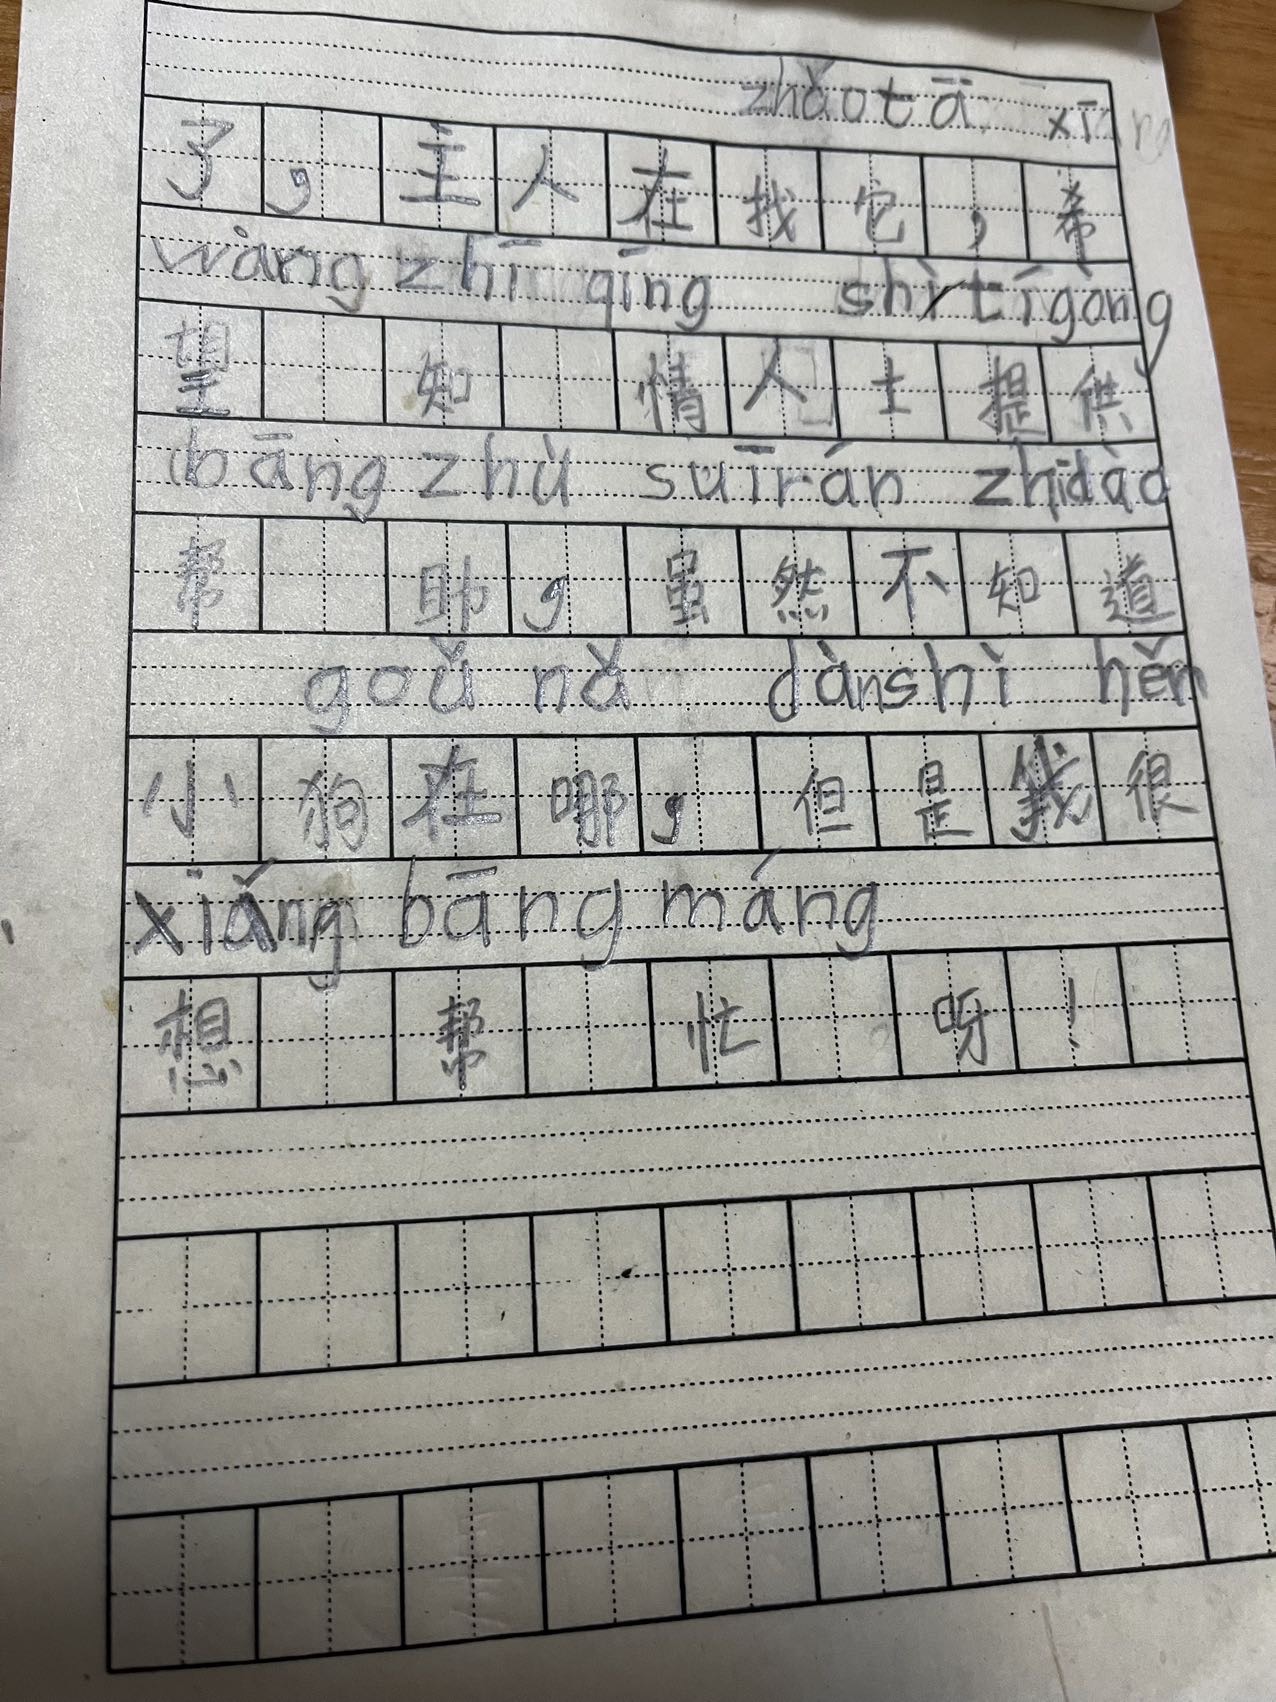 zhǎo tā xīng
了，主人在找它，希
wàng zhī qíng shì tí gòng
望知情人士提供
bāng zhù suī rán zhī dào
帮助，虽然不知道
goǔ nǎ dàn shì hěn
小狗在哪，但是我很
xiǎng bāng máng
想帮忙呀！